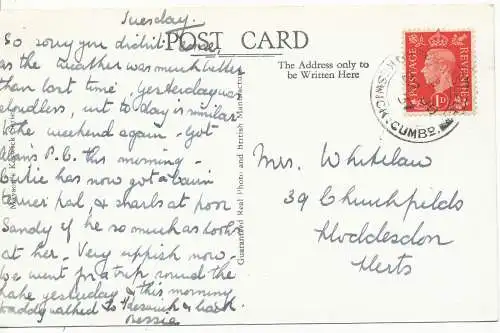 Tuesday.
So sorry you didn't come,
as the weather was much better
than last time, yesterday was
cloudless, but to day is similar
to the weekend again. Got
P.C. this morning.
has now got a
pal, & snarls at poor
Sandy if he so much as looks
at her. Very uppish now.
We went for a trip round the
Lake yesterday & this morning
Daddy walked to Keswick & back
Bessie
POST CARD
The Address only to
be Written Here
Guaranteed Real Photo and British Manufacture
Keswick
POSTAGE
REVENUE
1D
KESWICK
CUMBD
Mrs. Whitelaw
39 Churchfields
Hoddesdon
Herts